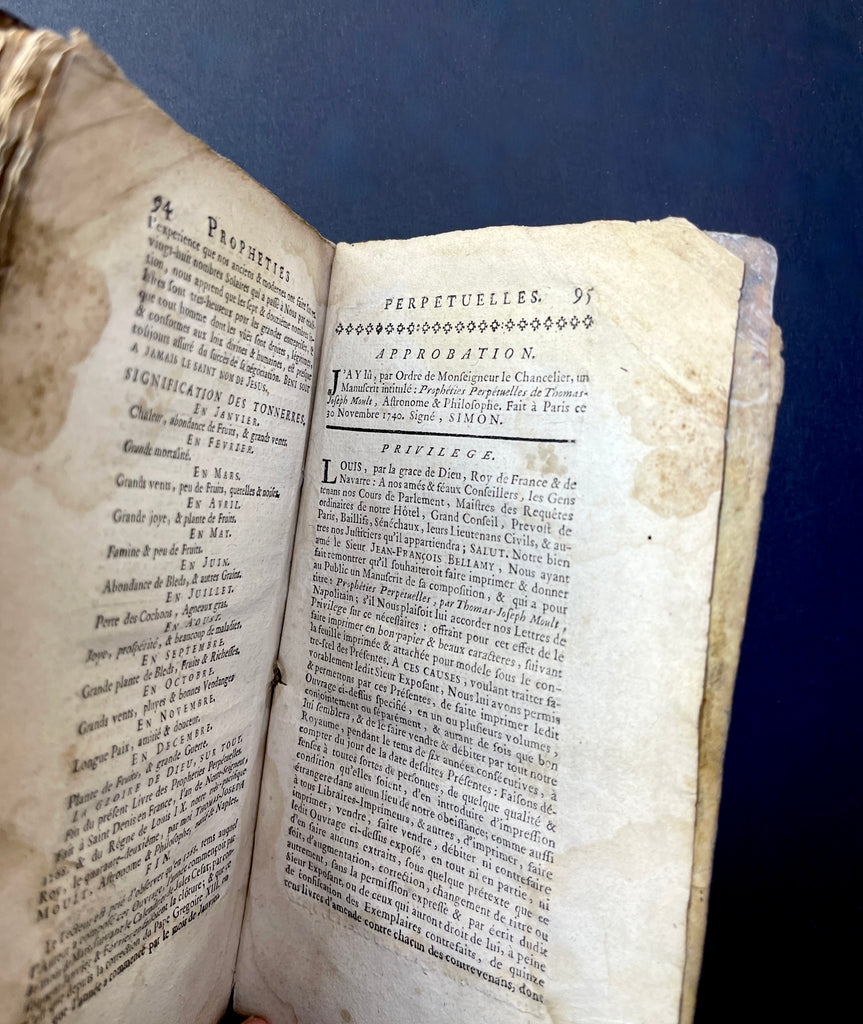 94 PROPHETIES
l'experience que nos anciens & modernes ont fait sur ces
vingt-huit nombres Solaires qui a passé à Nous par
tion, nous apprend que les sept & douziéme nombres
laires sont tres-heureux pour les grandes entreprises, &
que tout homme dont les vûës sont droites, légitimes,
& conformes aux loix divines & humaines, est presque
toûjours assuré du succès de sa négociation. BENI SOIT
A JAMAIS LE SAINT NOM DE JESUS.
SIGNIFICATION DES TONNERRES.
EN JANVIER.
Chaleur, abondance de Fruits, & grands vents.
EN FEVRIER.
Grande mortalité.
EN MARS.
Grands vents, peu de Fruits, querelles & noises.
EN AVRIL.
Grande joye, & plante de Fruits.
EN MAY.
Famine & peu de Fruits.
EN JUIN.
Abondance de Bleds, & autres Grains.
EN JUILLET.
Perte des Cochons, Agneaux gras.
EN AOUST.
Joye, prospérité, & beaucoup de maladies.
EN SEPTEMBRE.
Grande plante de Bleds, Fruits & Richesses.
EN OCTOBRE.
Grands vents, pluyes & bonnes Vendanges
EN NOVEMBRE.
Longue Paix, amitié & douceur.
EN DECEMBRE.
Plante de Fruits, & grande Guerre.
LA GLOIRE DE DIEU, SUR TOUT.
Fin du présent Livre des Propheties Perpétuelles.
Fait à Saint Denis en France, l'an de Notre-Seigneur,
1268. & du Règne de Louis IX. notre
Roy, le quarante-deuxième, par moi THOMAS-JOSEPH
MOULT, Astronome & Philosophe, natif de Naples.
FIN.
Le Lecteur est prié d'observer qu'en 1268. tems auquel
l'Auteur a composé cet Ouvrage, l'année commençoit par
le mois de Mars suivant le Calendrier de Jules Cesar; par con-
séquent Janvier & Février en faisoient la clôture; & que ce
n'est que depuis la correction du Pape Gregoire XIII. en
que l'année a commencé par le mois de Janvier.
PERPETUELLES. 95
APPROBATION.
J'AY lû, par Ordre de Monseigneur le Chancelier, un
Manuscrit intitulé : Prophéties Perpétuelles de Thomas-
Joseph Moult, Astronome & Philosophe. Fait à Paris ce
30 Novembre 1740. Signé, SIMON.
PRIVILEGE.
LOUIS, par la grace de Dieu, Roy de France & de
Navarre : A nos amés & féaux Conseillers, les Gens
tenans nos Cours de Parlement, Maistres des Requêtes
ordinaires de notre Hôtel, Grand Conseil, Prevost de
Paris, Baillifs, Sénéchaux, leurs Lieutenans Civils, & au-
tres nos Justiciers qu'il appartiendra ; SALUT. Notre bien
amé le Sieur JEAN-FRANÇOIS BELLAMY, Nous ayant
fait remontrer qu'il souhaiteroit faire imprimer & donner
au Public un Manuscrit de sa composition, & qui a pour
titre : Prophéties Perpétuelles, par Thomas-Joseph Moult,
Napolitain ; s'il Nous plaisoit lui accorder nos Lettres de
Privilege sur ce nécessaires : offrant pour cet effet de le
faire imprimer en bon papier & beaux caractères, suivant
la feuille imprimée & attachée pour modéle sous le con-
tre-scel des Présentes. A CES CAUSES, voulant traiter fa-
vorablement ledit Sieur Exposant, Nous lui avons permis
& permettons par ces Présentes, de faire imprimer ledit
Ouvrage ci-dessus specifié, en un ou plusieurs volumes,
conjointement ou séparément, & autant de fois que bon
lui semblera, & de le faire vendre & débiter par tout notre
Royaume, pendant le tems de six années consécutives, à
compter du jour de la date desdites Présentes : Faisons dé-
fenses à toutes sortes de personnes, de quelque qualité &
condition qu'elles soient, d'en introduire d'impression
étrangere dans aucun lieu de notre obeïssance ; comme aussi
à tous Libraires-Imprimeurs, & autres, d'imprimer, faire
imprimer, vendre, faire vendre, débiter ni contrefaire
ledit Ouvrage ci-dessus exposé, en tout ni en partie, ni
d'en faire aucuns extraits, sous quelque prétexte que ce
soit, d'augmentation, correction, changement de titre ou
autrement, sans la permission expresse & par écrit dudit
Sieur Exposant, ou de ceux qui auront droit de lui, à peine
de confiscation des Exemplaires contrefaits, de quinze
cens livres d'amende contre chacun des contrevenans, dont